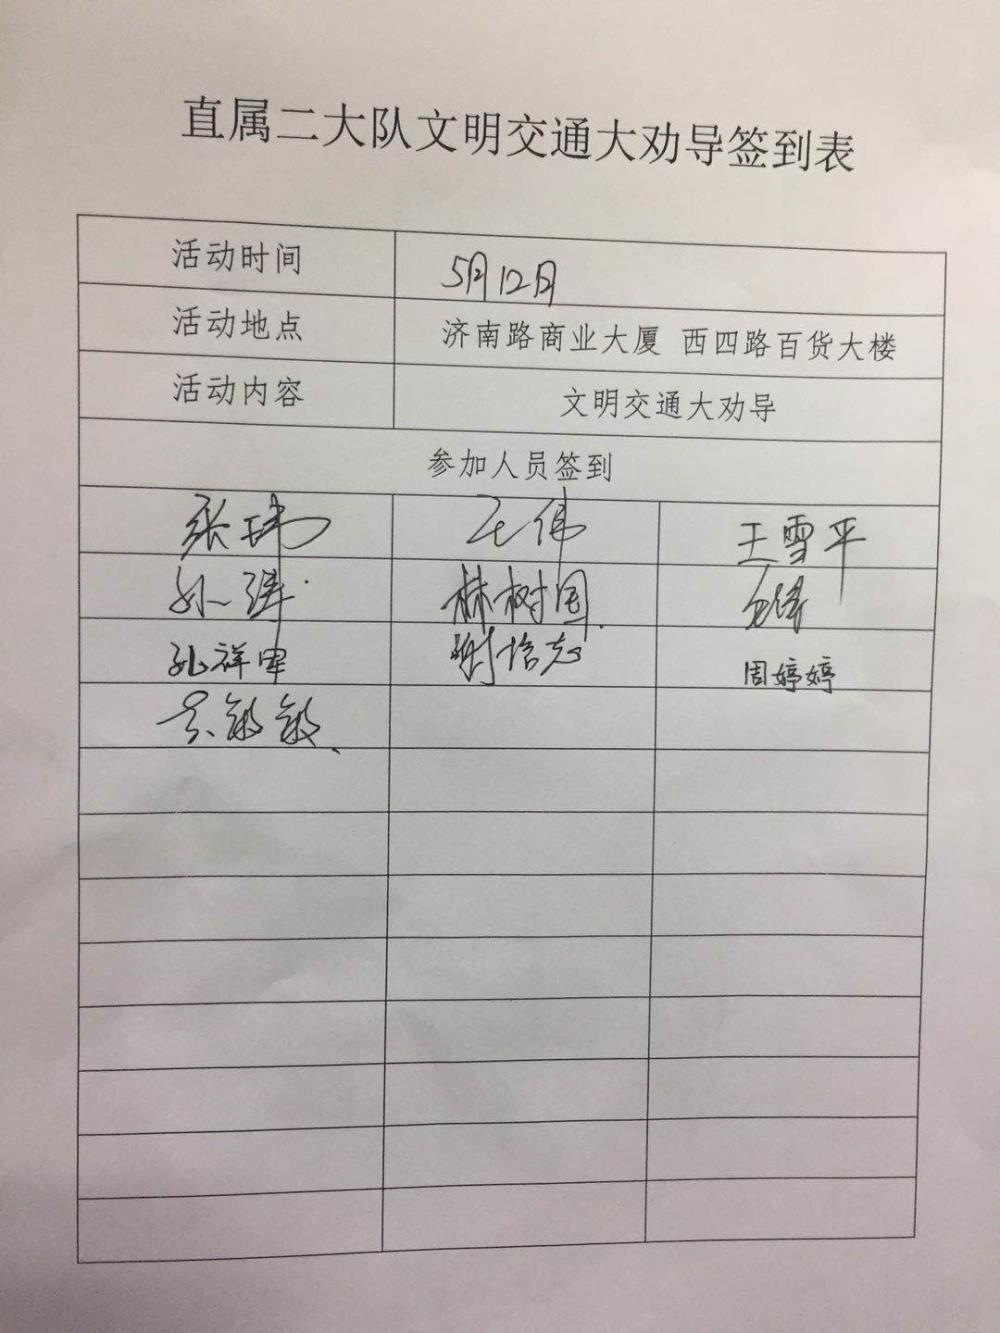 直属二大队文明交通大劝导签到表
活动时间 5月12日
活动地点 济南路商业大厦 西四路百货大楼
活动内容 文明交通大劝导
参加人员签到
张玮 王伟 王雪平
孙 林树国
孔祥军 谢培志 周婷婷
吴敏敏